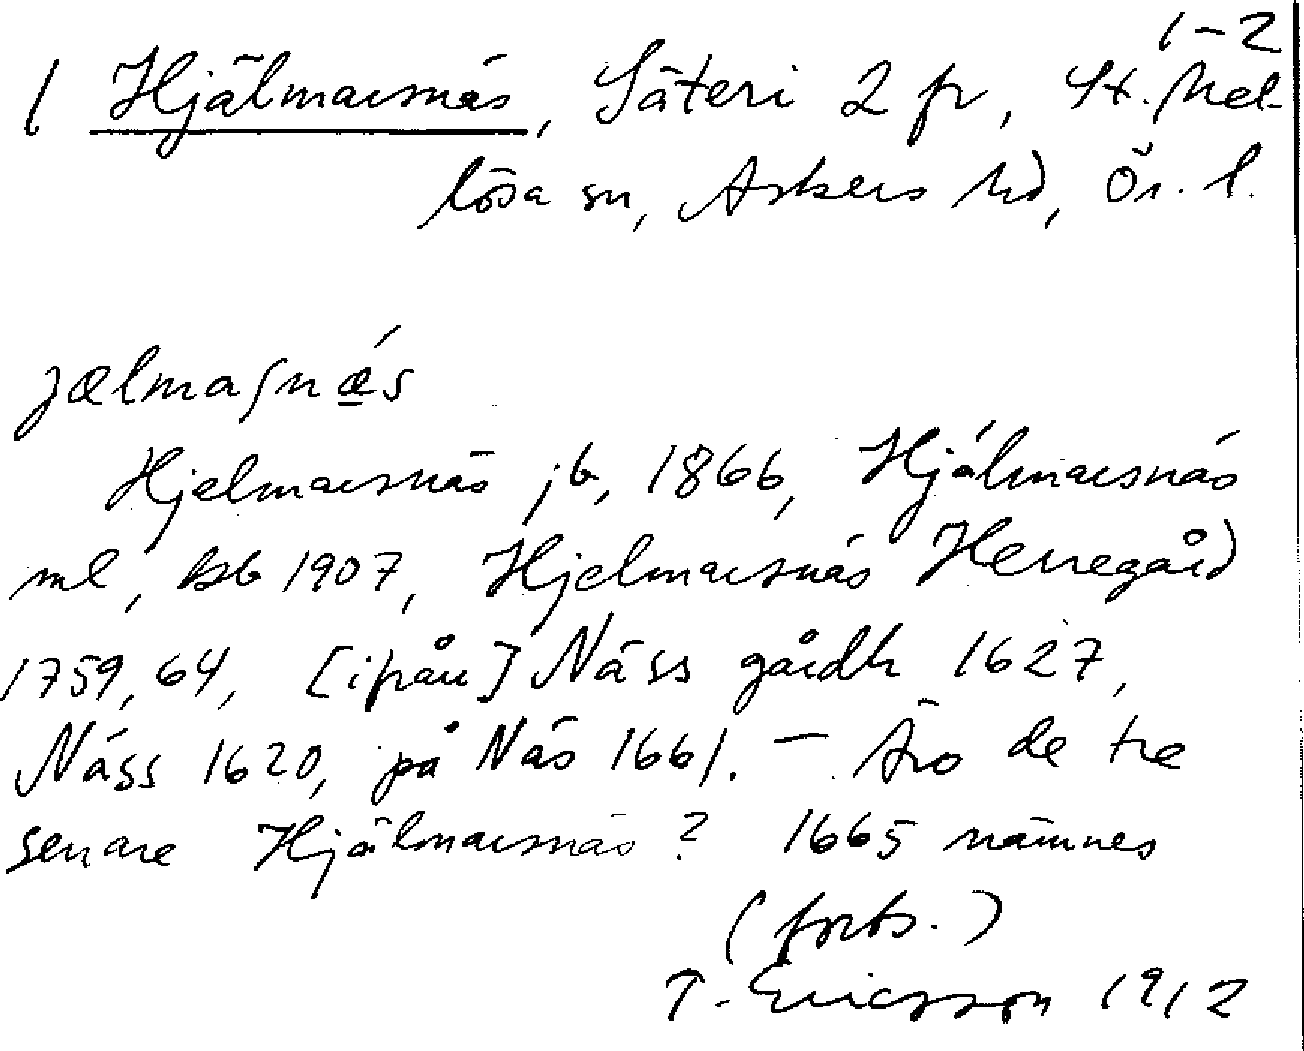 1-2
1 Hjälmarsnäs, Säteri 2 fr, St. Mel-
lösa sn, Askers hd, Ör. l.
jælmaʃnǽ̲s
Hjelmarsnäs jb, 1866, Hjälmarsnäs
ml, bsb 1907, Hjelmarsnäs Herregård
1759, 64, [ifrån] Näss gårdh 1627,
Näss 1620, på Näs 1661. — Äro de tre
senare Hjälmarsnäs? 1665 nämnes
(forts.)
T. Ericsson 1912